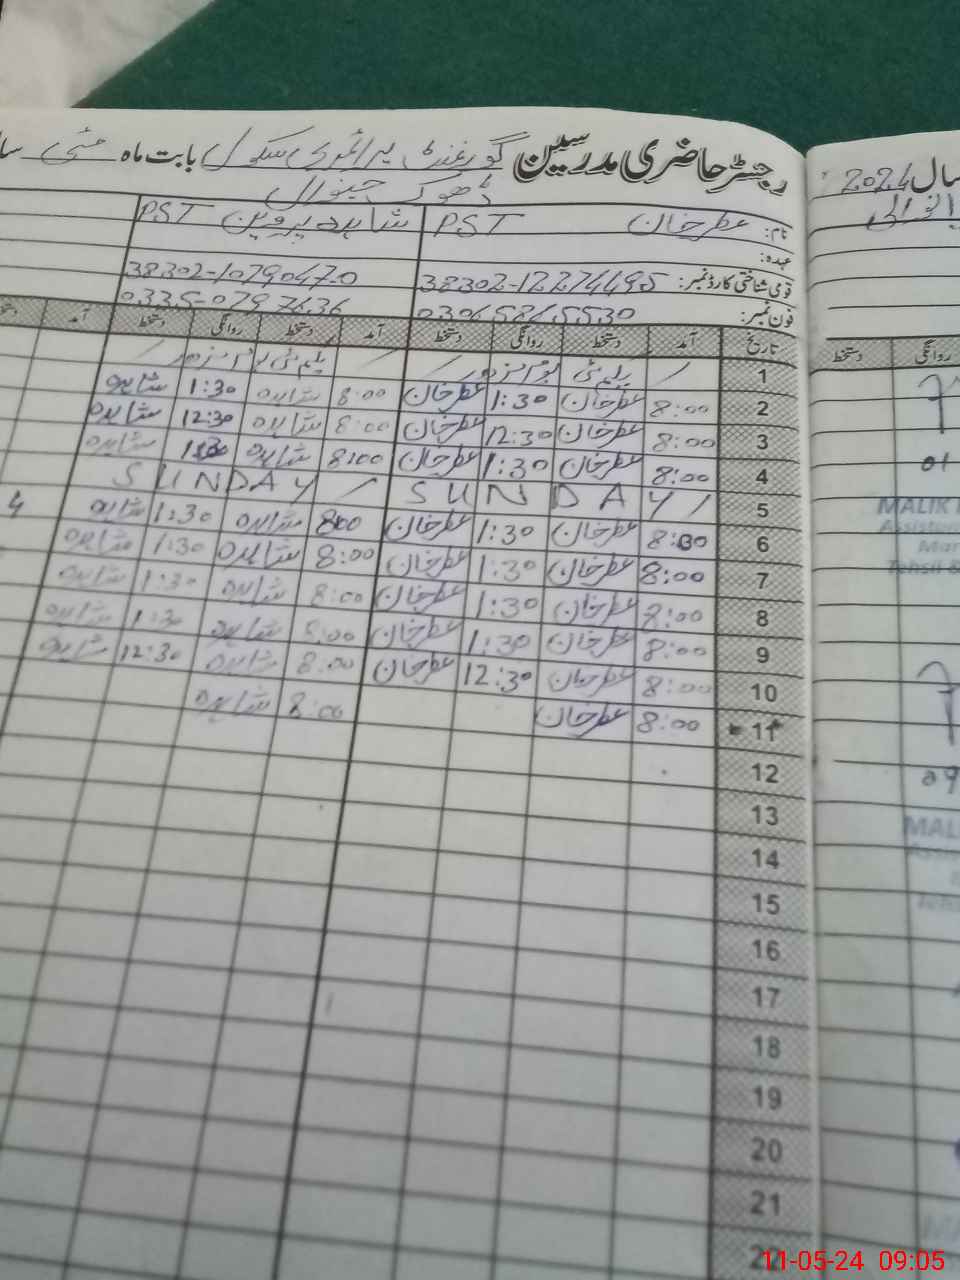 رجسٹر حاضری مدرسین گورنمنٹ پرائمری سکول بابت ماہ مئی سا
ڈھوک
سال 2024
نام: عطر خان PST شاہدہ پروین PST
عہدہ:
قومی شناختی کارڈ نمبر: 38302-12274495 38302-1079047-0
فون نمبر:
تاریخ آمد دستخط روانگی دستخط آمد دستخط روانگی دستخط آمد
روانگی دستخط
1 / یکم مئی یوم مزدور / / یکم مئی
2 8:00 عطر خان 1:30 عطر خان 8:00 شاہدہ 1:30 شاہدہ
3 8:00 عطر خان 12:30 عطر خان 8:00 شاہدہ 12:30 شاہدہ
4 8:00 عطر خان 1:30 عطر خان 8:00 شاہدہ 1:30 شاہدہ
5 / SUNDAY / SUNDAY
6 8:00 عطر خان 1:30 عطر خان 8:00 شاہدہ 1:30 شاہدہ
7 8:00 عطر خان 1:30 عطر خان 8:00 شاہدہ 1:30 شاہدہ
8 8:00 عطر خان 1:30 عطر خان 8:00 شاہدہ 1:30 شاہدہ
9 8:00 عطر خان 1:30 عطر خان 8:00 شاہدہ 1:30 شاہدہ
10 8:00 عطر خان 12:30 عطر خان 8:00 شاہدہ 12:30 شاہدہ
11 8:00 عطر خان 8:00 شاہدہ
12
13
14
15
16
17
18
19
20
21
01
MALIK
09
MAL
11-05-24 09:05